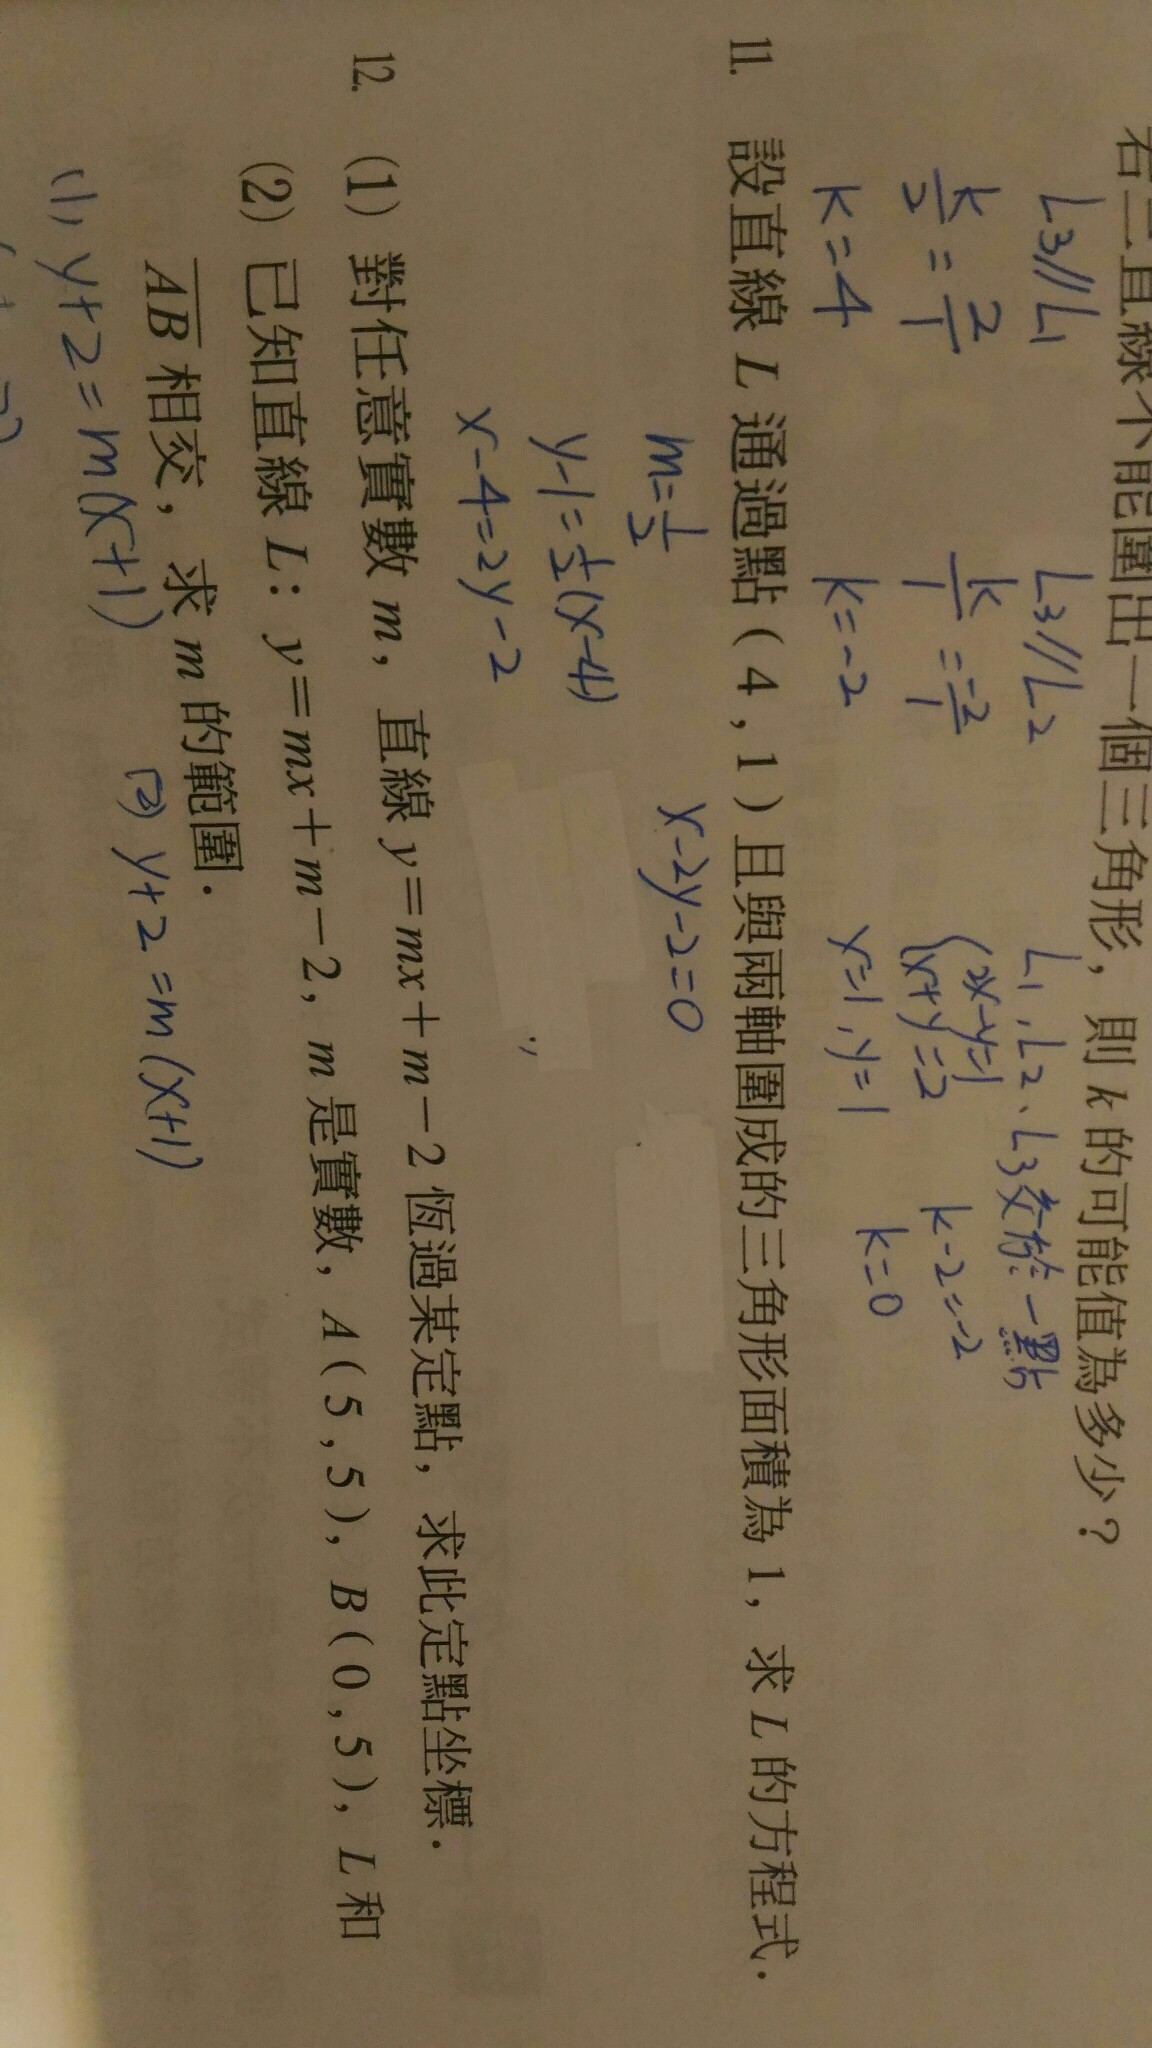 右三直線不能圍出一個三角形，則 k 的可能值為多少？
L3//L1
k/2 = 2/1
k=4
L3//L2
k/1 = -2/1
k=-2
L1、L2、L3交於一點
2x-y=1
x+y=2
x=1, y=1
k-2=-2
k=0
11. 設直線 L 通過點(4,1)且與兩軸圍成的三角形面積為 1，求 L 的方程式.
m=1/2
y-1=1/2(x-4)
x-4=2y-2
x-2y-2=0
12. (1) 對任意實數 m，直線 y=mx+m-2 恆過某定點，求此定點坐標.
(2) 已知直線 L：y=mx+m-2，m 是實數，A(5,5)，B(0,5)，L 和
AB 相交，求 m 的範圍.
(1) y+2=m(x+1)
(2) y+2=m(x+1)